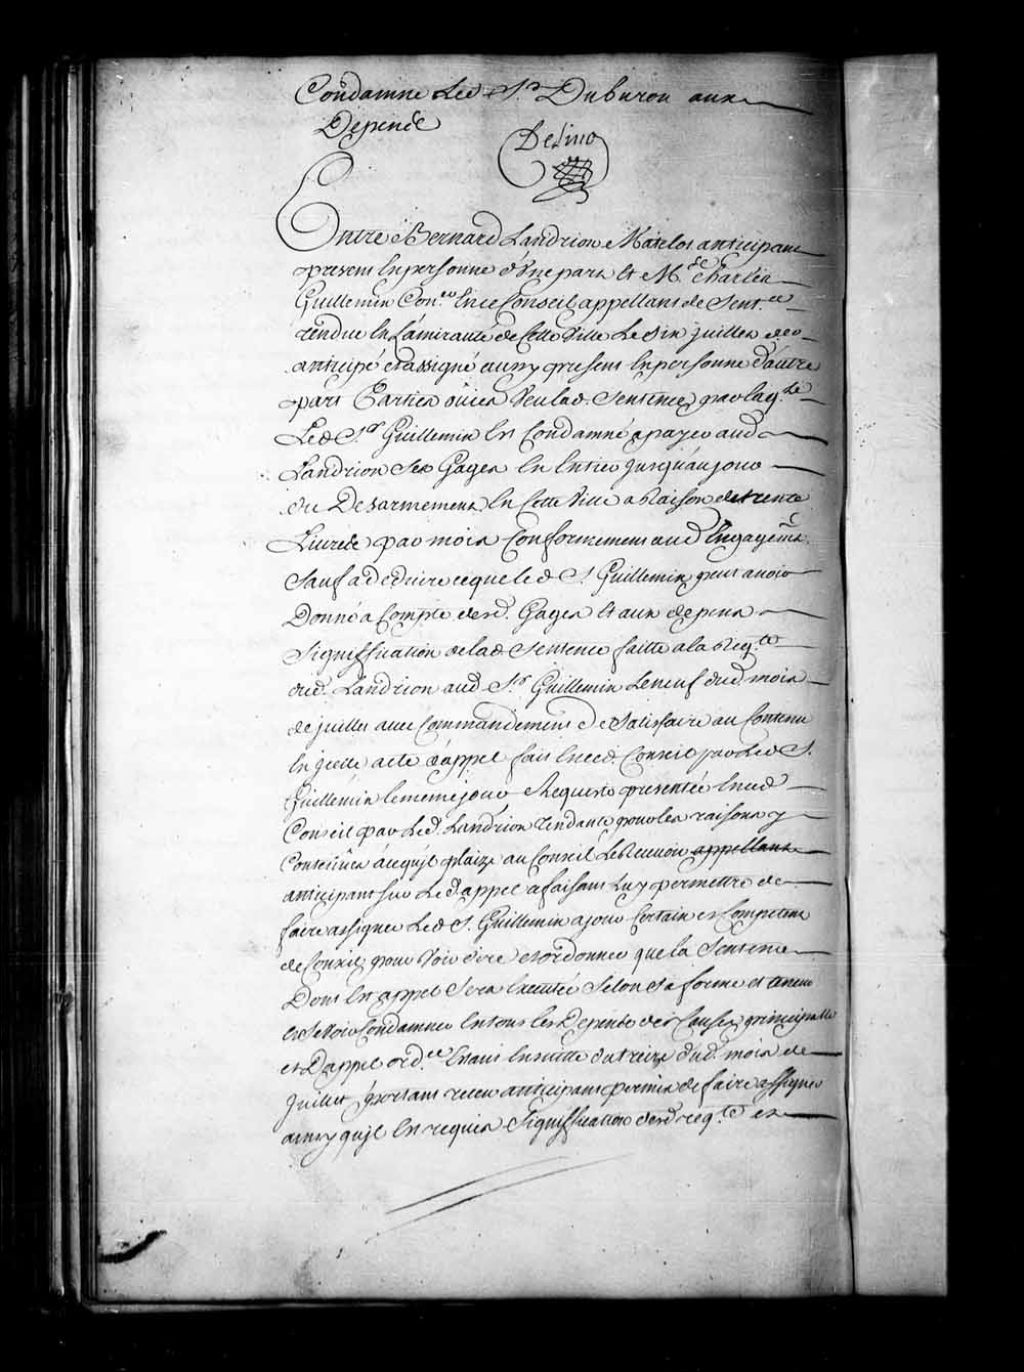 Condamne Led Sr Duburon aux
Depens
Delino
Entre Bernard Landrion Matelot anticipant
present En personne d'Une part Et Me Charles
Guillemin Coner En ce Conseil appellant de Sentce
rendue En L'amirauté de Cette Ville Le Six juillet dr
anticipé et assigné aussy present En personne d'autre
part Parties ouies Veu lad. Sentence par laqle
Led Sr Guillemin Est Condamné a payer aud
Landrion Ses Gages En Entier jusqu'au jour
du Desarmement En Cette Ville a Raison de trente
Livres par mois Conformement aud Engagemt
Sauf a deduire ce que led Sr Guillemin peut avoir
Donné a Compte desd. Gages Et aux depens
Signiffication de lad Sentence faitte a la Reqte
dud. Landrion aud Sr Guillemin Le neuf dud mois
de juillet avec Commandement de Satisfaire au Contenu
En jcelle acte d'appel fait En ced. Conseil par Led S.
Guillemin le meme jour Requeste presentée En ced
Conseil par Led. Landrion Tendante pour les raisons y
Contenues a ce qu'jl plaise au Conseil Le Recevoir appellant
anticipant Sur Led appel a faisant Luy permettre de
faire assigner Led S. Guillemin a jour Certain et Competent
de Conseil pour Voir dire et ordonner que la Sentence
Dont Est appel Sera Executée Selon Sa forme et teneur
et Se Voir Condamner En tous Les Depens des Causes principalle
et D'appel ordce Estant Ensuitte du treize dud. mois de
juillet portant receu anticipant permis de faire assigner
ainsy qu'jl Est requis Signiffication desd reqte et